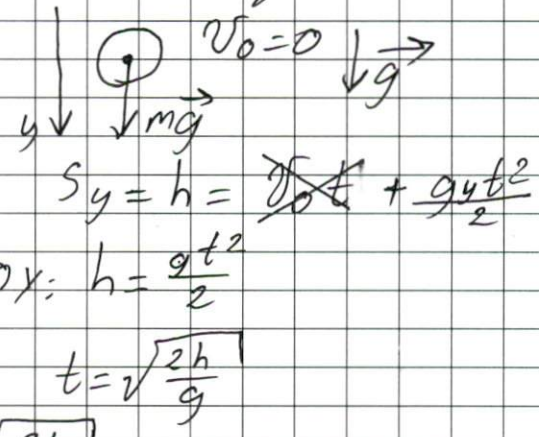 V₀=0 g⃗
y mg⃗
Sy = h = V₀t + gyt²/2
OY: h = gt²/2
t = √(2h/g)